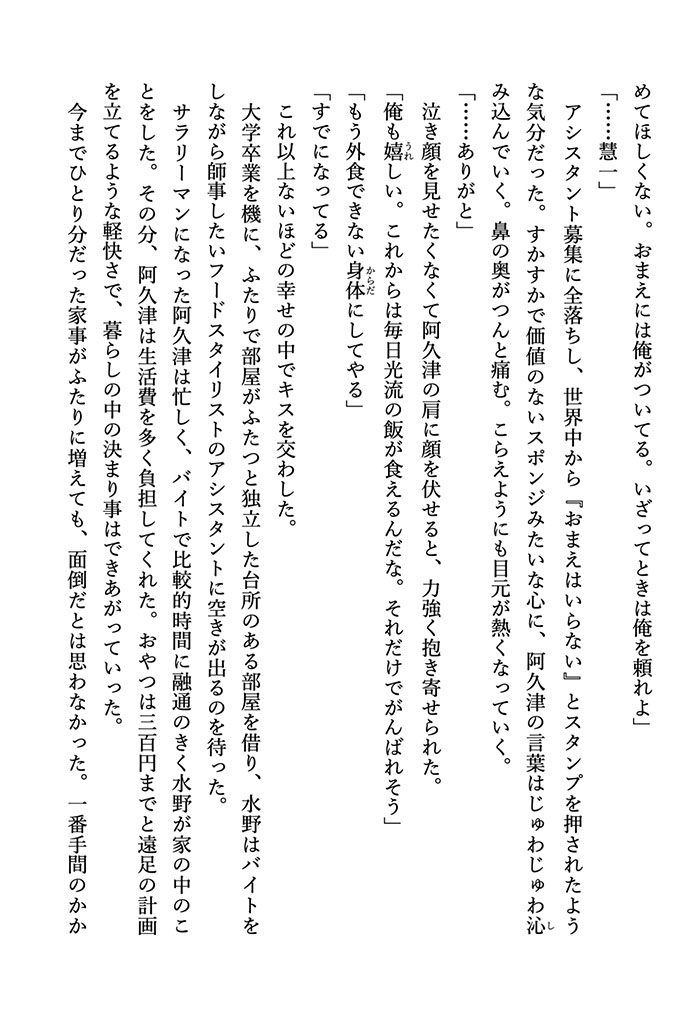 めてほしくない。おまえには俺がついてる。いざってときは俺を頼れよ」
「……慧一」
　アシスタント募集に全落ちし、世界中から『おまえはいらない』とスタンプを押されたよう
な気分だった。すかすかで価値のないスポンジみたいな心に、阿久津の言葉はじゅわじゅわ沁し
み込んでいく。鼻の奥がつんと痛む。こらえようにも目元が熱くなっていく。
「……ありがと」
　泣き顔を見せたくなくて阿久津の肩に顔を伏せると、力強く抱き寄せられた。
「俺も嬉うれしい。これからは毎日光流の飯が食えるんだな。それだけでがんばれそう」
「もう外食できない身体からだにしてやる」
「すでになってる」
　これ以上ないほどの幸せの中でキスを交わした。
　大学卒業を機に、ふたりで部屋がふたつと独立した台所のある部屋を借り、水野はバイトを
しながら師事したいフードスタイリストのアシスタントに空きが出るのを待った。
　サラリーマンになった阿久津は忙しく、バイトで比較的時間に融通のきく水野が家の中のこ
とをした。その分、阿久津は生活費を多く負担してくれた。おやつは三百円までと遠足の計画
を立てるような軽快さで、暮らしの中の決まり事はできあがっていった。
　今までひとり分だった家事がふたりに増えても、面倒だとは思わなかった。一番手間のかか